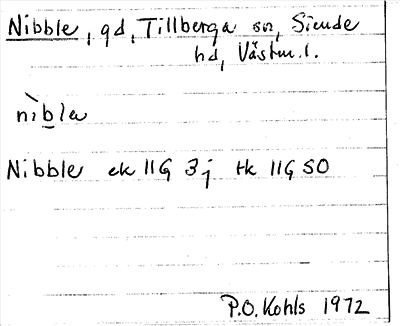 Nibble, gd, Tillberga sn, Siende
hd, Västm.l.
nìb̲la
Nibble ek 11G 3j tk 11G SO
P.O. Kohls 1972